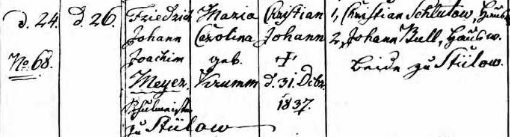 d. 24. d. 26. Friedrich Maria Christian 1, Christian Schlutow, Hausw.
Johann Carolina Johann 2, Johann Bull, Hausw.
No 68. Joachim geb. † beide zu Stülow.
Meyer, Krumm d. 31. Dcbr.
Schulmeister 1837.
zu Stülow